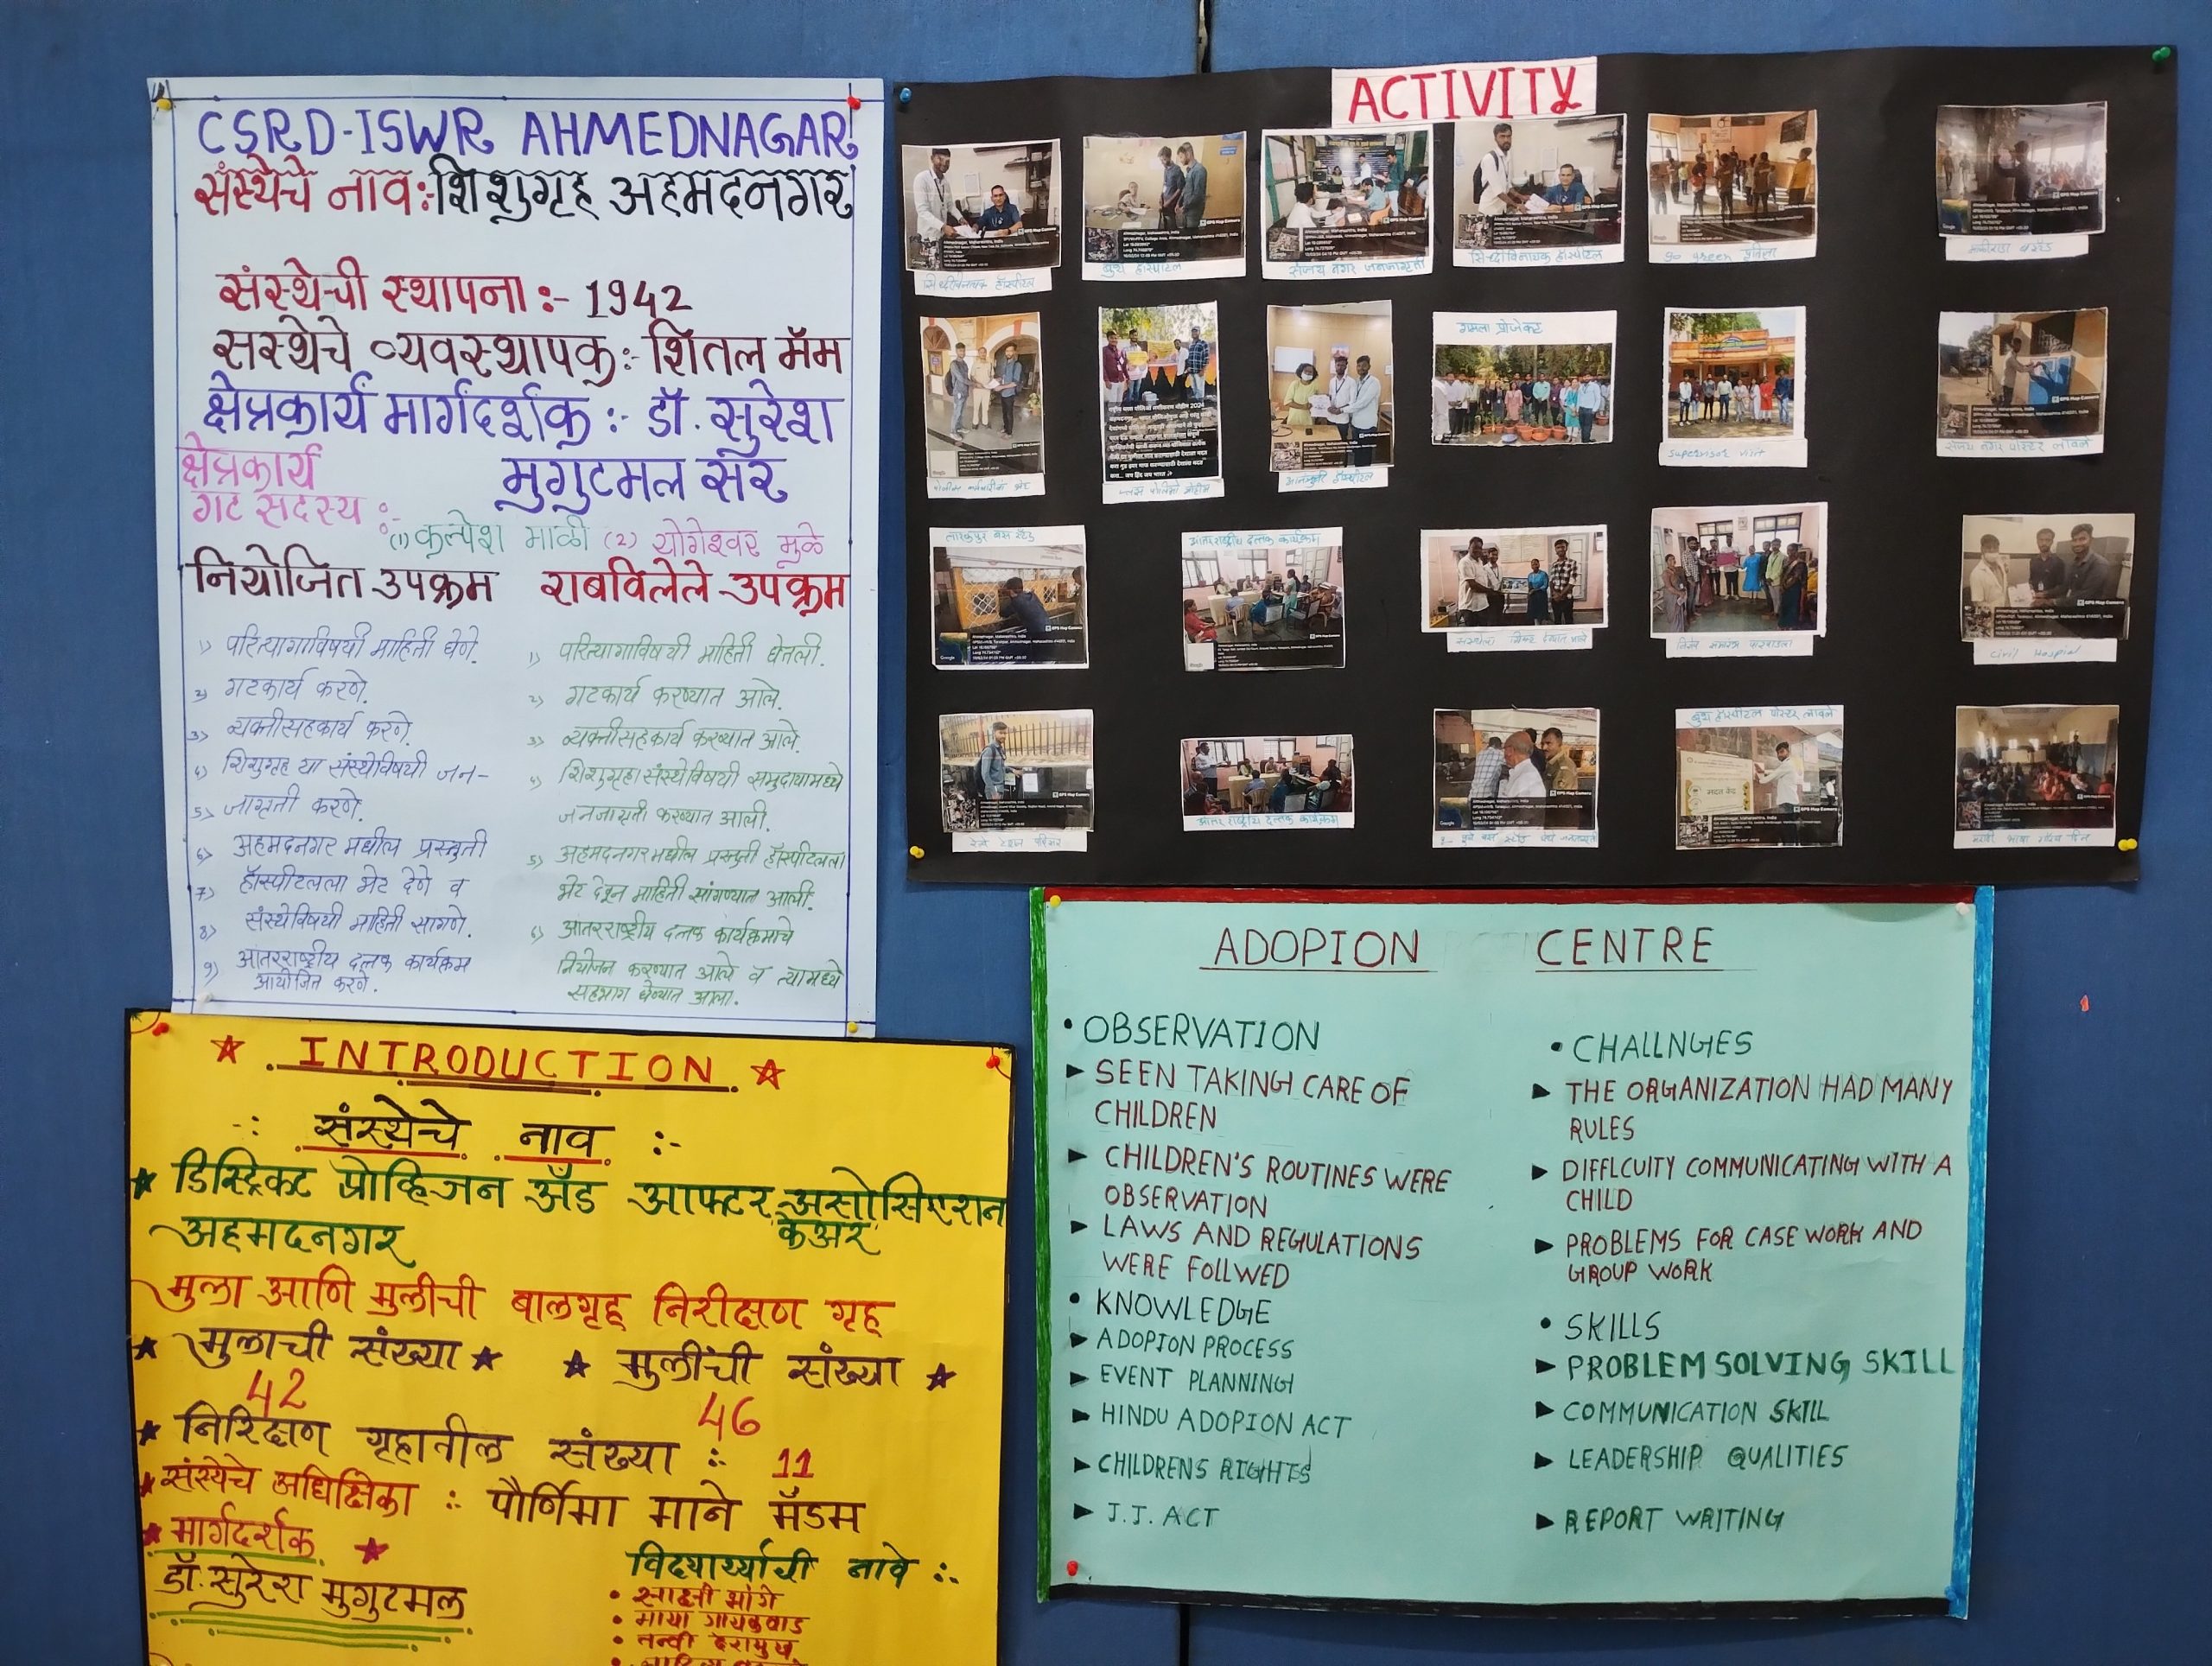 CSRD-ISWR AHMEDNAGAR
संस्थेचे नाव:-शिशुगृह अहमदनगर
संस्थेची स्थापना :- 1942
सस्थेचे व्यवस्थापक:- शितल मॅम
क्षेत्रकार्य मार्गदर्शक :- डॉ. सुरेश
मुगुटमल सर
क्षेत्रकार्य
गट सदस्य :-
(1) कल्पेश माळी (2) योगेश्वर मुळे
नियोजित उपक्रम
1) परित्यागाविषयी माहिती घेणे.
2) गटकार्य करणे.
3) व्यक्तीसहकार्य करणे.
4) शिशुगृह या संस्थेविषयी जन-
5) जागृती करणे.
6) अहमदनगर मधील प्रस्तुती
7) हॉस्पीटलला भेट देणे व
8) संस्थेविषयी माहिती सागणे.
9) आतरराष्ट्रीय दत्तक कार्यक्रम
आयोजित करणे.
राबविलेले उपक्रम
1) परित्यागाविषयी माहिती घेतली.
2) गटकार्य करण्यात आले.
3) व्यक्तीसहकार्य करण्यात आले.
4) शिशुगृहा संस्थेविषयी समुदायामध्ये
जनजागृती करण्यात आली.
5) अहमदनगर मधील प्रस्तुती हॉस्पीटलला
भेट देवून माहिती सांगण्यात आली.
6) आतरराष्ट्रीय दत्तक कार्यक्रमाचे
नियोजन करण्यात आले व त्यामध्ये
सहभाग घेण्यात आला.
ACTIVITY
बुथ हॉस्पीटल
संजय नगर जनजागृती
सिध्दीविनायक हॉस्पीटल
go green
गमला प्रोजेक्ट
supervisor visit
संजय नगर पोस्टर लावले
तारकपुर बस स्टँड
आतरराष्ट्रीय दत्तक कार्यक्रम
civil Hospial
आतरराष्ट्रीय दत्तक कार्यक्रम
बुथ हॉस्पीटल पोस्टर लावले
INTRODUCTION
-: संस्थेचे नाव :-
डिस्ट्रिक्ट प्रोव्हिजन अँड आफ्टर असोसिएशन
केअर
अहमदनगर
मुला आणि मुलीची बालगृह निरीक्षण गृह
मुलाची संख्या मुलींची संख्या
42 46
निरिक्षण गृहातील संख्या :- 11
संस्थेचे अधिक्षिका :- पौर्णिमा माने मॅडम
मार्गदर्शक
डॉ. सुरेश मुगुटमल
विद्यार्थ्यांची नावे :-
माया गायकवाड
तन्वी देशमुख
ADOPION CENTRE
• OBSERVATION
► SEEN TAKING CARE OF
CHILDREN
► CHILDREN'S ROUTINES WERE
OBSERVATION
► LAWS AND REGULATIONS
WERE FOLLWED
• KNOWLEDGE
► ADOPION PROCESS
► EVENT PLANNING
► HINDU ADOPION ACT
► CHILDRENS RIGHTS
► J.J. ACT
• CHALLNGES
► THE ORGANIZATION HAD MANY
RULES
► DIFFLCUITY COMMUNICATING WITH A
CHILD
► PROBLEMS FOR CASE WORK AND
GROUP WORK
• SKILLS
► PROBLEM SOLVING SKILL
► COMMUNICATION SKILL
► LEADERSHIP QUALITIES
► REPORT WRITING